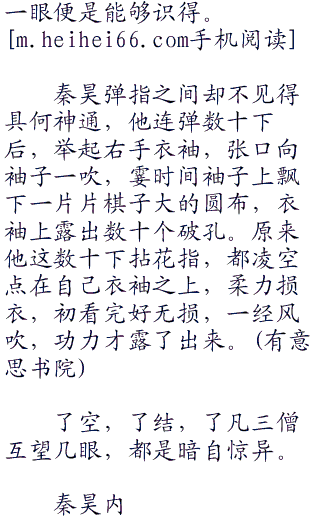 一眼便是能够识得。
[m.heihei66.com手机阅读]
秦昊弹指之间却不见得
具何神通，他连弹数十下
后，举起右手衣袖，张口向
袖子一吹，霎时间袖子上飘
下一片片棋子大的圆布，衣
袖上露出数十个破孔。原来
他这数十下拈花指，都凌空
点在自己衣袖之上，柔力损
衣，初看完好无损，一经风
吹，功力才露了出来。(有意
思书院)
了空，了结，了凡三僧
互望几眼，都是暗自惊异。
秦昊内